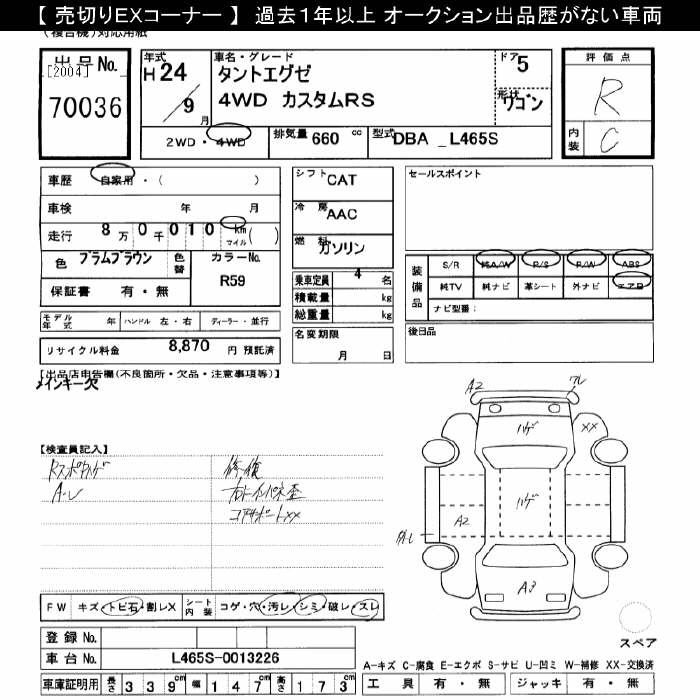 【 売切りEXコーナー 】 過去1年以上 オークション出品歴がない車両
(複合機)対応用紙
出品No.
[2004]
70036
年式
H 24
9 月
車名・グレード
タントエグゼ
4WD カスタムRS
ドア 5
形状 ワゴン
2WD・4WD
排気量 660 cc
型式 DBA _L465S
評価点
R
内装 C
車歴 自家用・( )
車検 年 月
走行 8万0千010 km マイル ( )
色 プラムブラウン 色替
カラーNo. R59
保証書 有・無
シフト CAT
冷房 AAC
燃料 ガソリン
乗車定員 4 名
積載量 kg
総重量 kg
セールスポイント
装備品
S/R 純A/W P/S P/W ABS
純TV 純ナビ 革シート 外ナビ エアB
ナビ型番:
モデル年式 年 ハンドル 左・右 ディーラー・並行
リサイクル料金 8,870 円 預託済
名変期限
月 日
後日品
【出品店申告欄(不良箇所・欠品・注意事項等)】
メインキー欠
【検査員記入】
A・レ
修復
コアサポートXX
A2
ワレ
ハゲ
XX
ハゲ
A2
A3
FW キズ・トビ石・割レX
シート内装 コゲ・穴・汚レ・シミ・破レ・スレ
登録No.
車台No. L465S-0013226
車庫証明用 長さ 339cm 幅 147cm 高さ 173cm
スペア
A-キズ C-腐食 E-エクボ S-サビ U-凹ミ W-補修 XX-交換済
工具 有・無 ジャッキ 有・無